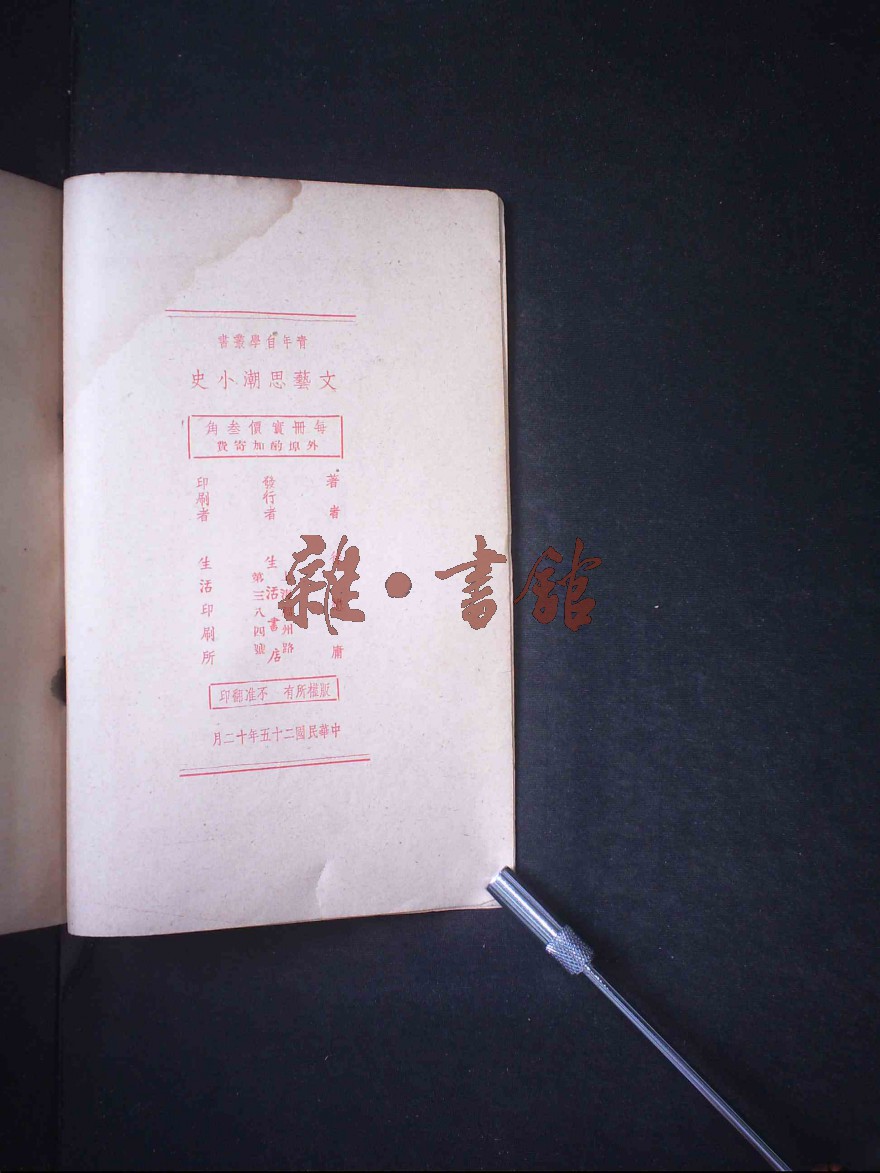 青年自學叢書
文藝思潮小史
每冊實價叁角
外埠酌加寄費
著者 庸
發行者 生活書店
州路
第三八四號
印刷者 生活印刷所
版權所有 不准翻印
中華民國二十五年十二月
雜·書館